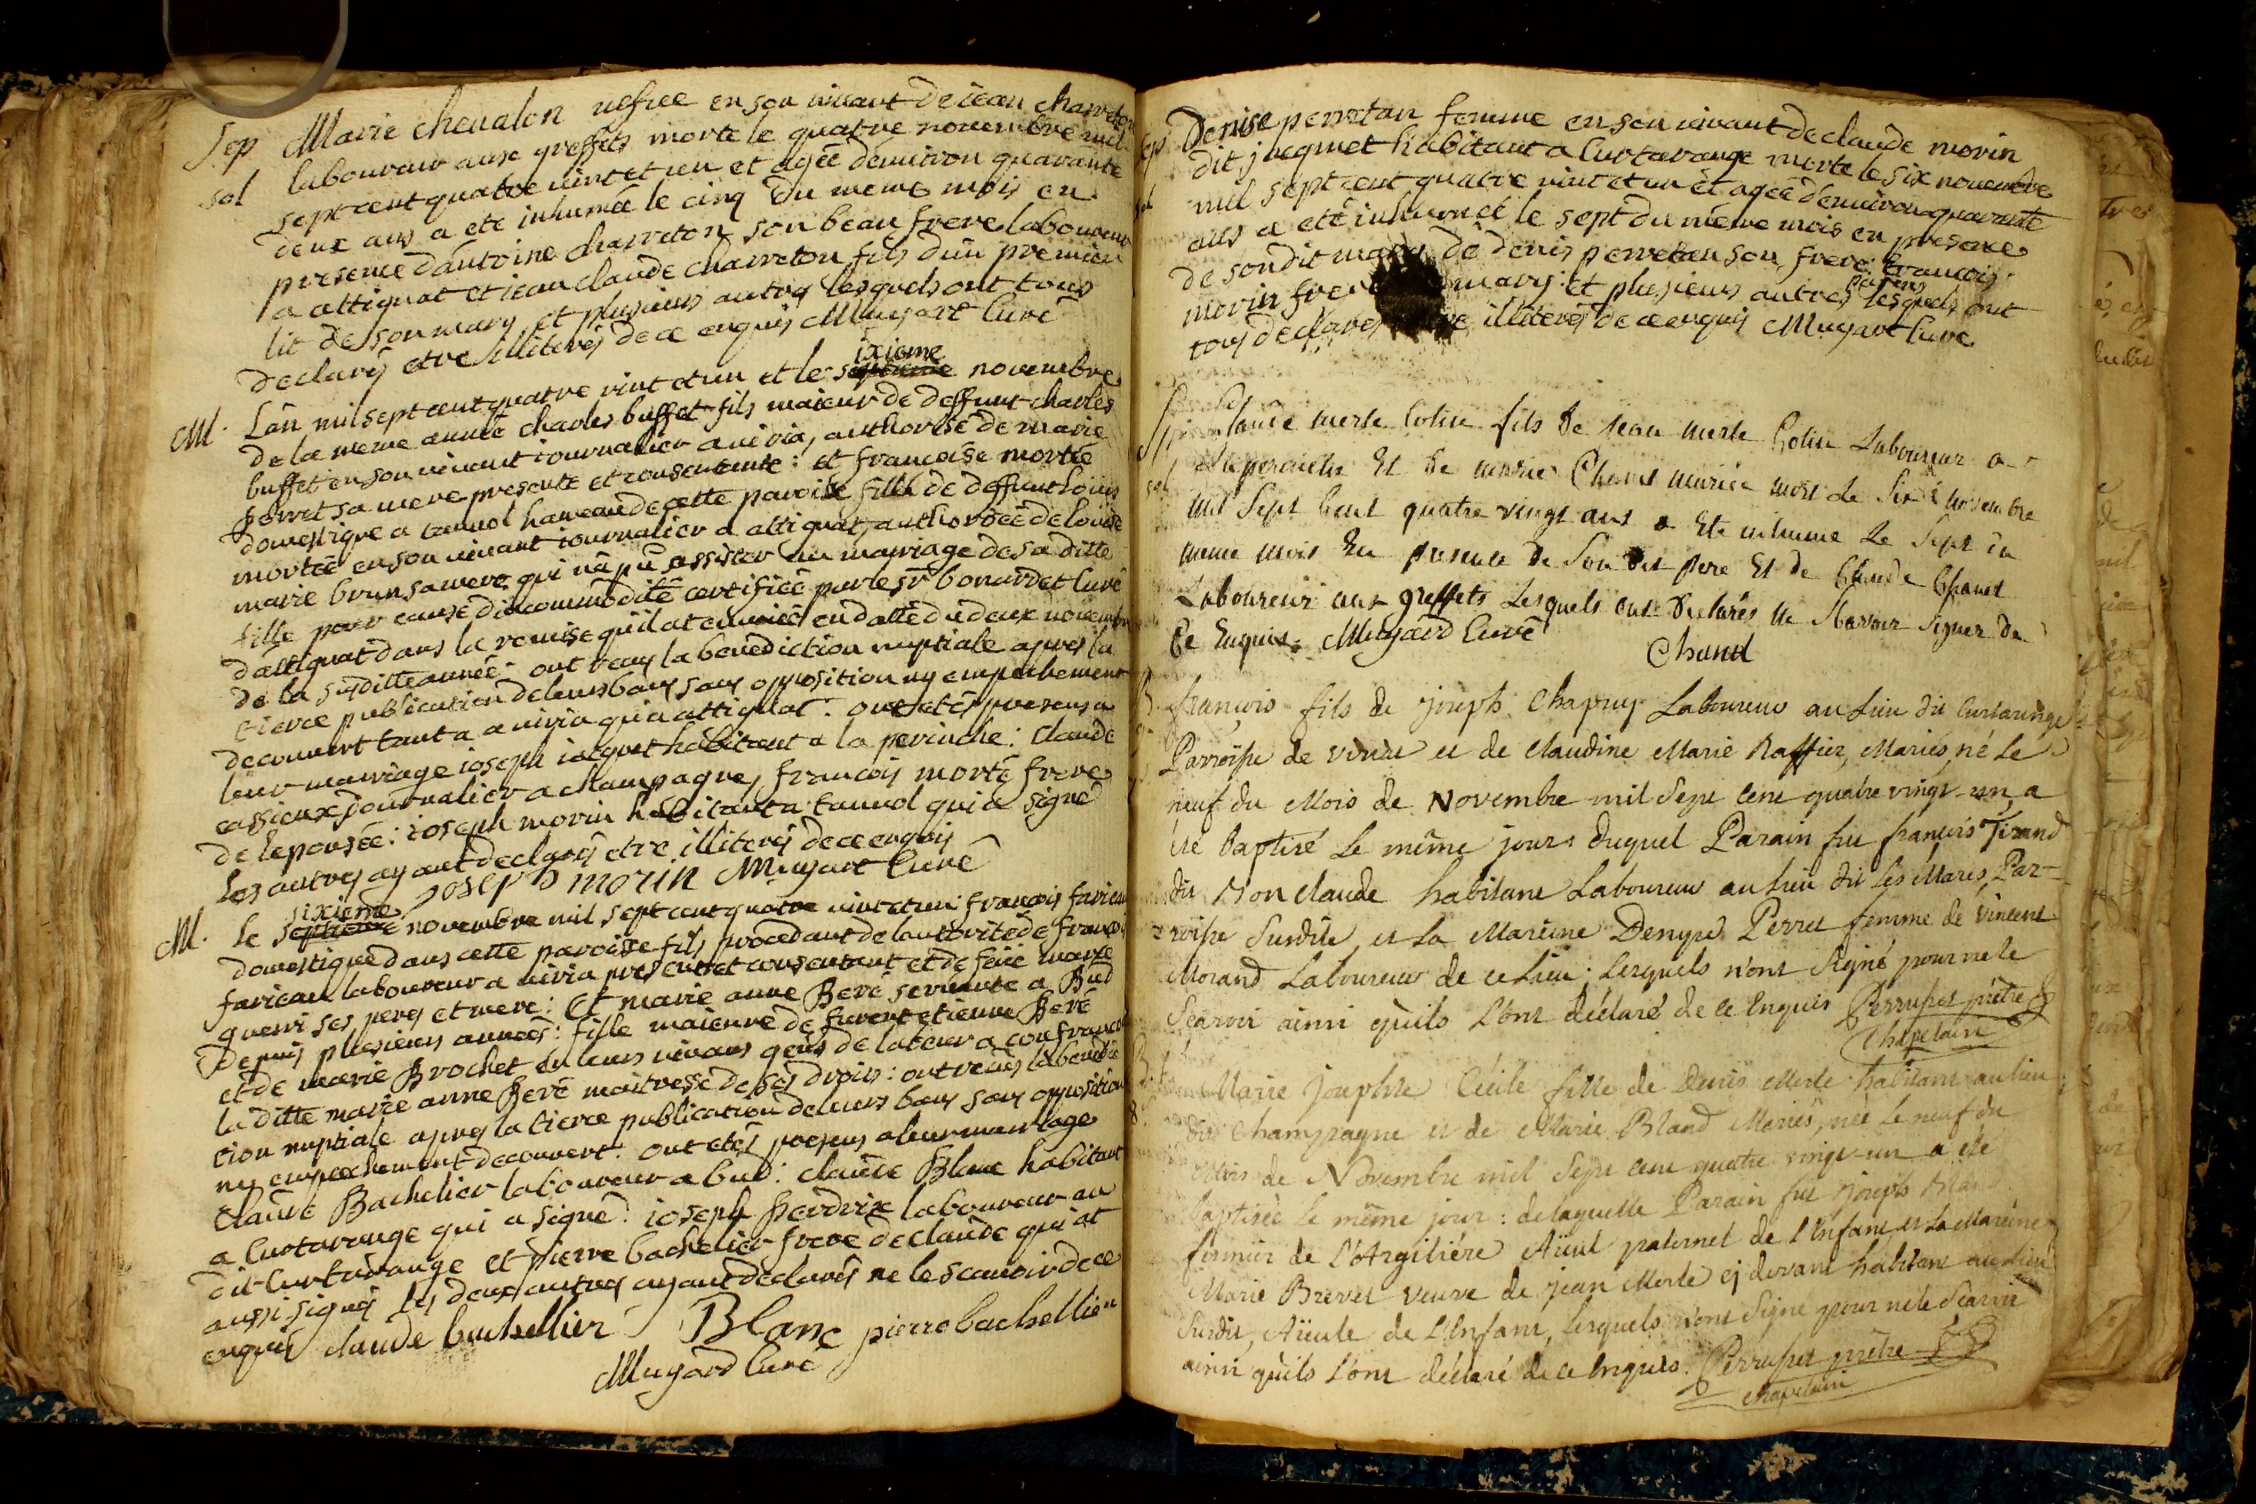 Sep Marie cheualon en son uiuant de iean charreton
sol laboureur aux greffets morte le quatre nouembre mil
sept cent quatre uint et un et agée denuiron quarante
deux ans a ete inhumée le cinq du meme mois en
presence dantoine charreton son beau frere laboureur
a attignat et iean claude charreton fils dun premier
lit de son mary et plusieurs autres lesquels ont tous
declarés etre illiterés de ce enquis Muyart Curé
M. Lan mil sept cent quatre uint et un et le septieme ixieme nouembre
de la meme année charles buffet fils maieur de deffunt charles
buffet en son uiuant iournalier a uiria, authorisé de marie
perret sa mere presente et consentente : et francoise mortée
domestique a tannol hameau de cette paroisse fille de deffunt Louis
mortée en son uiuant iournalier a attignat, authorisée de louise
marie brun sa mere qui n'a pû assister au mariage de sa ditte
fille pour cause dincommodité certifiée par le sr bonardet Curé
dattignat dans la remise quil at enuoiée en datte du deux nouembre
de la susditte année. ont reçus la benediction nuptiale apres la
tierce publication de leurs bans sans opposition ny empechement
decouuert tant a a uiria qu'a attignat. ont etés presens a
leur mariage ioseph iacquet habitant a la perinche : claude
cassieux journalier a champagne, francois morté frere
de lepousée : ioseph morin habitant a tannol qui a signé
les autres ayant declarés etre illiterés de ce enquis
joseph morin Muyart Curé
M. Le septieme sixieme nouembre mil sept cent quatre uint et un francois farieau
domestique dans cette paroisse fils procedant de lautorité de francois
farieau laboureur a uiria present et consentant et de feüe marie
querri ses pere et mere : Et marie anne Beré seruante a Bud
depuis plusieurs années : fille maieure de furent etienne Beré
et de marie Brochet en leurs uiuans gens de labeur a confrancon
la ditte marie anne Beré maitresse de ses droits : ont reçus la benedic
tion nuptiale apres la tierce publication de leurs bans sans opposition
ny empechement decouuert. ont etés presens a leur mariage
Claude Bachelier laboureur a bud : claude Blanc habitant
a Curtarenge qui a signé : ioseph perdrix laboureur au
dit Curtarange et pierre bachelier frere de claude qui at
aussi signés les deux autres ayant declarés ne le scauoir de ce
enquis claude bachellier Blanc pierre bachellier
Muyard Curé
Sep Denise perretan femme en son uiuant de claude morin
dit jacquet habitant a Curtarange morte le six nouembre
mil sept cent quatre uint et un et agée denuiron quarante
ans a eté inhumée le sept du même mois en presence
de son dit mary de denis perretan son frere francois
morin frere mary : et plusieurs autres parens lesquels ont
tous declarés illiterés de ce enquis Muyart Curé
Claude merle Cotin fils de Jean merle Cotin Laboureur a
Et de marie Chanel mariés mort Le Six novembre
mil Sept Cent quatre vingt ans a Ete inhumé Le Sept du
meme mois En presence de Son dit pere Et de Claude Chanel
Laboureur aux greffets Lesquels ont declarés ne Scavoir Signer de
Ce Enquis. Muyard Curé
Chanel
françois fils de joseph Chapuy Laboureur au lieu dit Curtarenge
Parroisse de viriat et de Claudine Marie Raffier, Mariés, né le
neuf du Mois de Novembre mil Sept Cent quatre vingt-un, a
été baptisé le même jour : duquel Parain fut françois Tirand
dit Mon claude habitant Laboureur au lieu dit les Mares, Par-
roisse Susdite, et la Mareine Denyse Perret femme de vincent
Morand Laboureur de ce Lieu ; lesquels n'ont Signé pour ne le
Scavoir ainsi qu'ils L'ont déclaré de ce Enquis Perruset prêtre
Chapelain
Marie Josephte Cécile fille de Denis Merle habitant au lieu
dit Champagne et de Marie Bland Mariés, née le neuf du
Mois de Novembre mil Sept cent quatre vingt-un a été
baptisée le même jour : de laquelle Parain fut joseph
fermier de L'Argiliére Aïeul paternel de l'Enfant, et La Mareine
Marie Brevet veuve de jean Merle cj devant habitant au lieu
Susdit, Aïeule de L'Enfant, lesquels n'ont Signé pour ne le Scavoir
ainsi qu'ils L'ont déclaré de ce Enquis. Perruset prêtre
chapelain